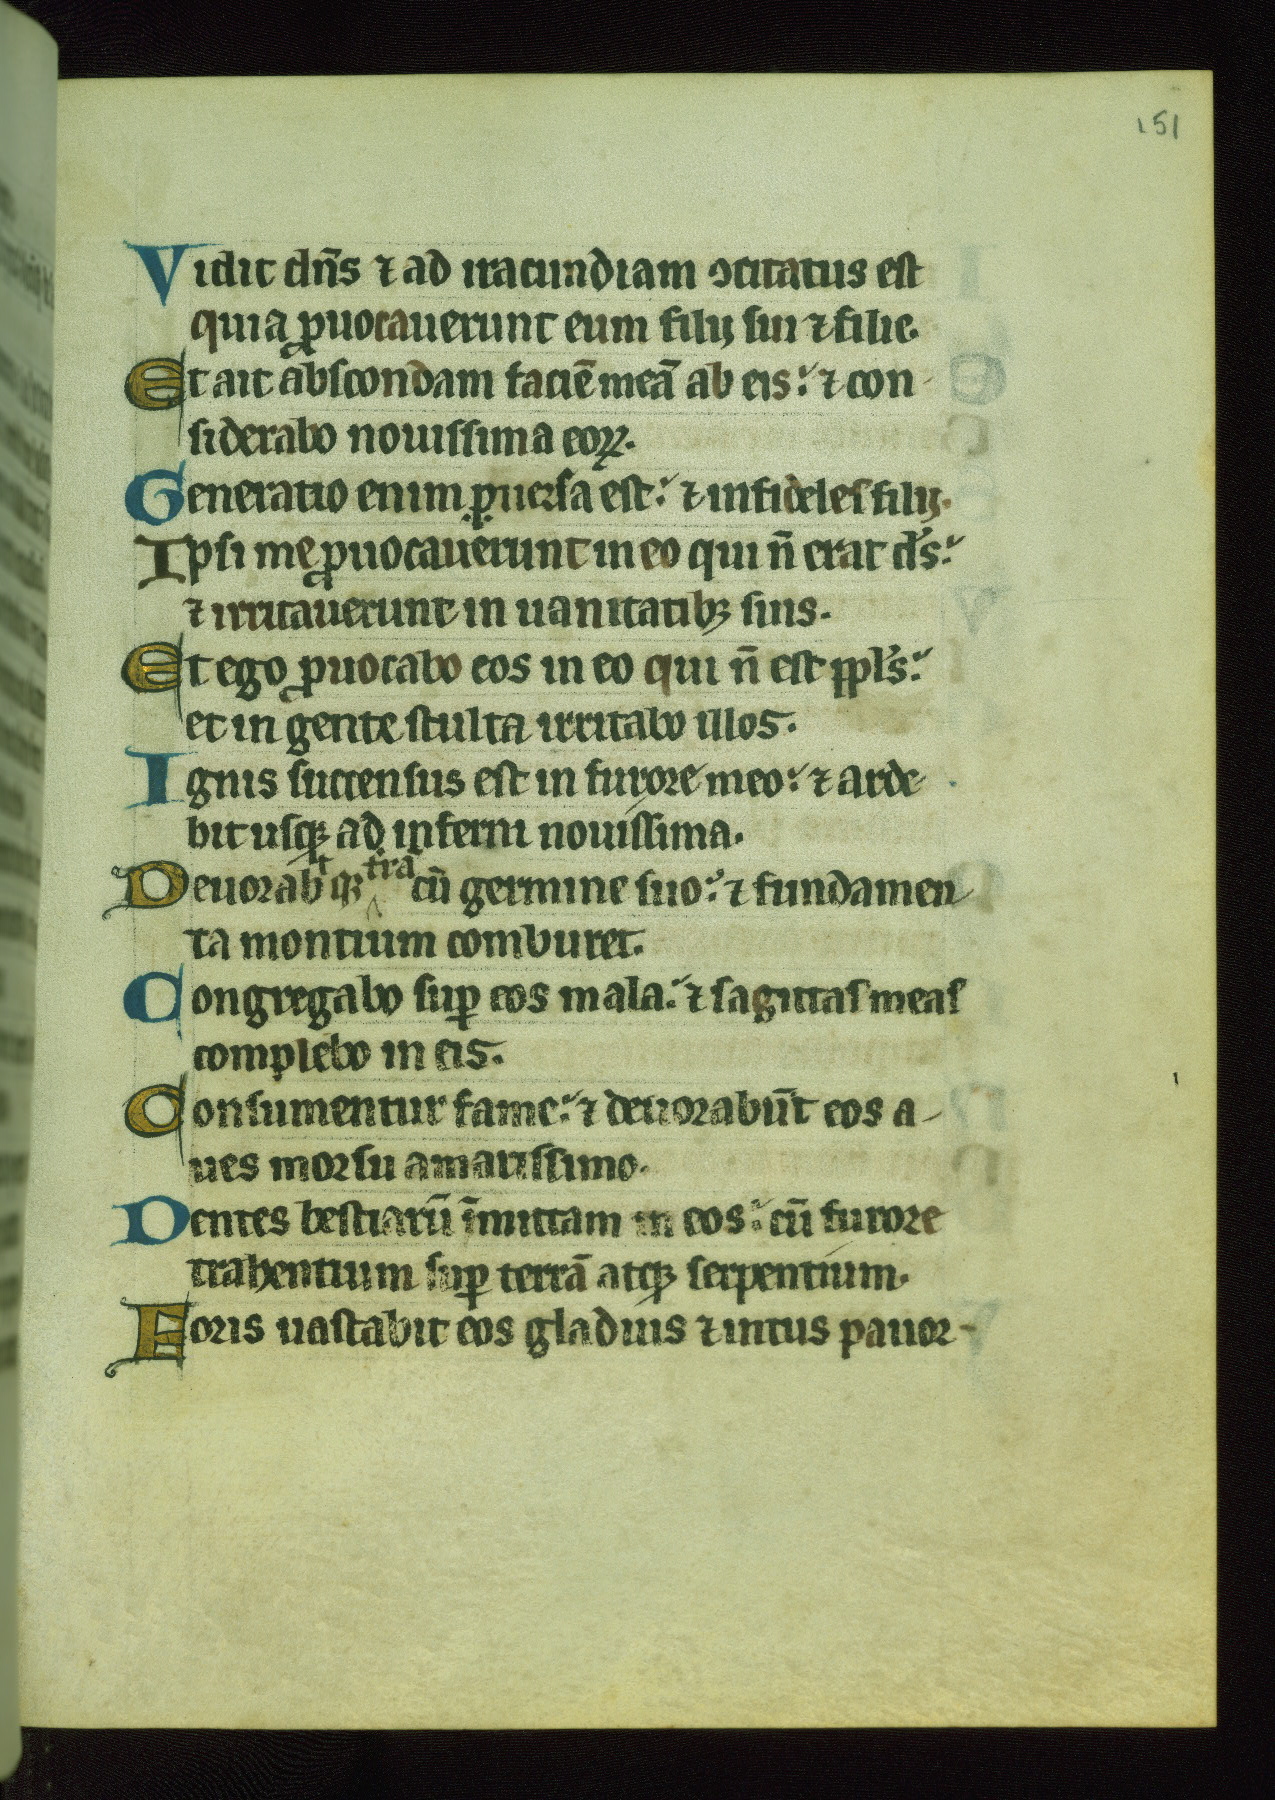 151
Vidit dn̄s ⁊ ad iracundiam ꝯcitatus est
quia ꝓuocauerunt eum filij sui ⁊ filie.
Et ait abscondam faciē meā ab eis: ⁊ con-
siderabo nouissima eoꝝ.
Generatio enim ꝑuersa est: ⁊ infideles filij.
Ipsi me ꝓuocauerunt in eo qui n̄ erat d's:
⁊ irritauerunt in uanitatibꝫ suis.
Et ego ꝓuocabo eos in eo qui n̄ est ppl's:
et in gente stulta irritabo illos.
Ignis succensus est in furore meo: ⁊ arde-
bit usqꝫ ad inferni nouissima.
Deuorabit qꝫ trā cū germine suo: ⁊ fundamen-
ta montium comburet.
Congregabo suꝑ eos mala: ⁊ sagittas meas
complebo in eis.
Consumentur fame: ⁊ deuorabūt eos a-
ues morsu amarissimo.
Dentes bestiarū īmittam in eos: cū furore
trahentium suꝑ terrā atqꝫ serpentium.
Foris uastabit eos gladius ⁊ intus pauor-